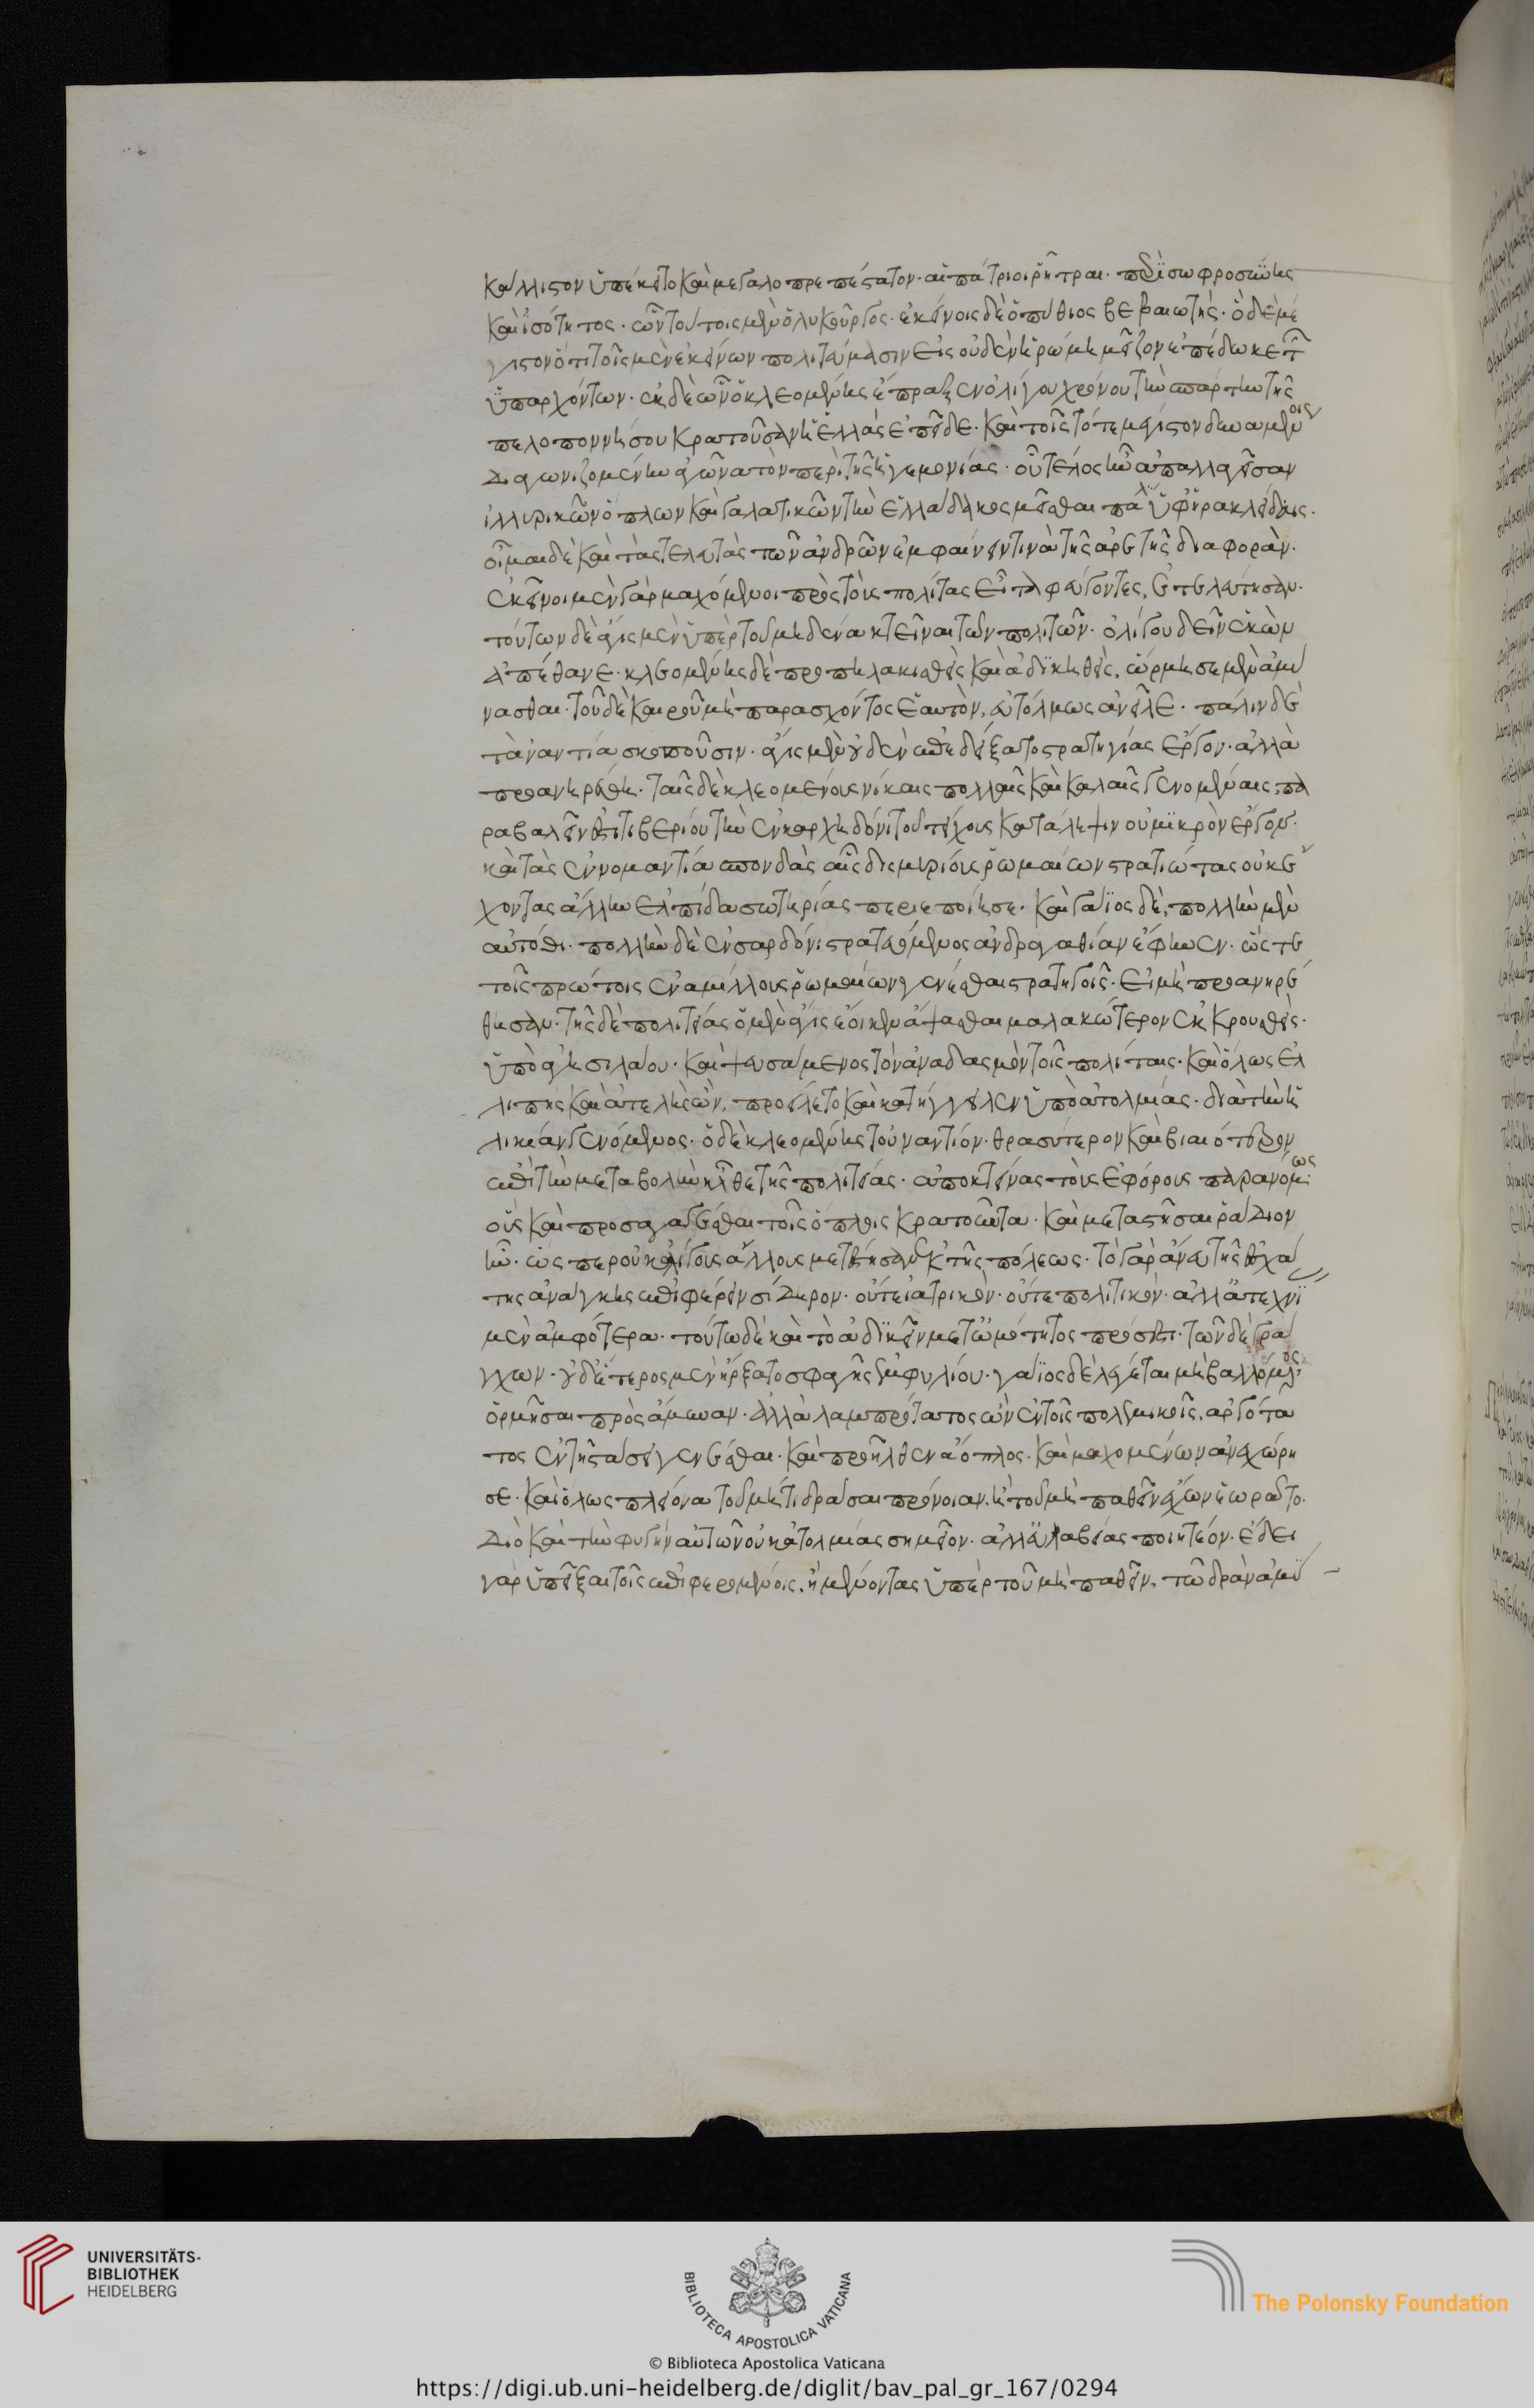 κάλλιστον ὑπέκειτο καὶ μεγαλοπρεπέστατον. αἱ πάτριοι ῥῆτραι. περὶ σωφροσύνης
καὶ ἰσότητος. ὧν τούτοις μὲν ὁ λυκοῦργος. ἐκείνοις δὲ ὁ πύθιος βεβαιωτής. ὃ δὲ μέ
γιστον ὅτι τοῖς μὲν ἐκείνων πολιτεύμασιν εἰς οὐδὲν ἡ ῥώμη μεῖζον ἐπέδωκε τῶν
ὑπαρχόντων. ἐκ δὲ ὧν ὁ κλεομένης ἔπραξεν ὀλίγου χρόνου τὴν σπάρτην τῆς
πελοποννήσου κρατοῦσαν ἡ ἑλλὰς ἐπεῖδε. καὶ τοῖς τότε μέγιστον δυναμένοις
διαγωνιζομένην ἀγῶνα τὸν περὶ τῆς ἡγεμονίας. οὗ τέλος ἦν ἀπαλλαγεῖσαν
ἰλλυρικῶν ὅπλων καὶ γαλατικῶν τὴν ἑλλάδα κοσμεῖσθαι πάλιν ὑφ' ἡρακλείδαις.
οἶμαι δὲ καὶ τὰς τελευτὰς τῶν ἀνδρῶν ἐμφαίνειν τινὰ τῆς ἀρετῆς διαφοράν.
ἐκεῖνοι μὲν γὰρ μαχόμενοι πρὸς τοὺς πολίτας εἶτα φεύγοντες, ἐτελεύτησαν.
τούτων δὲ ἆγις μὲν ὑπὲρ τοῦ μηδένα κτεῖναι τῶν πολιτῶν. ὀλίγου δεῖν ἑκὼν
ἀπέθανε. κλεομένης δὲ προπηλακισθεὶς καὶ ἀδικηθεὶς, ὥρμησε μὲν ἀμύ
νασθαι. τοῦ δὲ καιροῦ μὴ παρασχόντος ἑαυτὸν, εὐτόλμως ἀνεῖλε. πάλιν δὲ
τἀναντία σκοποῦσιν. ἆγις μὲν οὐδὲν ἀπεδείξατο στρατηγίας ἔργον. ἀλλὰ
προανῃρέθη. ταῖς δὲ κλεομένους νίκαις πολλαῖς καὶ καλαῖς γενομέναις. πα
ραβαλεῖν ἔστι τιβερίου τὴν ἐν καρχηδόνι τοῦ τείχους κατάληψιν οὐ μικρὸν ἔργον.
καὶ τὰς ἐν νομαντίᾳ σπονδὰς αἷς δισμυρίους ῥωμαίων στρατιώτας οὐκ ἔ
χοντας ἄλλην ἐλπίδα σωτηρίας περιεποίησε. καὶ γάϊος δὲ, πολλὴν μὲν
αὐτόθι. πολλὴν δὲ ἐν σαρδόνι στρατευόμενος ἀνδραγαθίαν ἔφηνεν. ὥστε
τοῖς πρώτοις ἐναμίλλους ῥωμαίων γενέσθαι στρατηγοῖς. εἰ μὴ προανῃρέ
θησαν. τῆς δὲ πολιτείας ὁ μὲν ἆγις ἔοικεν ἅψασθαι μαλακώτερον ἐκκρουσθεὶς.
ὑπὸ ἀγησιλάου. καὶ ψευσάμενος τὸν ἀναδασμὸν τοῖς πολίταις. καὶ ὅλως ἐλ
λιπὴς καὶ ἀτελὴς ὢν, προείλετο καὶ κατήγγειλεν ὑπὸ ἀτολμίας. διὰ τὴν ἡ
λικίαν γενόμενος. ὁ δὲ κλεομένης τοὐναντίον. θρασύτερον καὶ βιαιότερον
ἐπὶ τὴν μεταβολὴν ἦλθε τῆς πολιτείας. ἀποκτείνας τοὺς ἐφόρους παρανόμως
οὓς καὶ προσαγαγέσθαι τοῖς ὅπλοις κρατοῦντα. καὶ μεταστῆσαι ῥάδιον
ἦν. ὥσπερ οὐκ ὀλίγους ἄλλους μετέστησαν ἐκ τῆς πόλεως. τὸ γὰρ ἄνευ τῆς ἐσχά
της ἀνάγκης ἐπιφέρειν σίδηρον. οὔτε ἰατρικὸν. οὔτε πολιτικὸν. ἀλλ' ἀτεχνί
μὲν ἀμφότερα. τούτῳ δὲ καὶ τὸ ἀδικεῖν μετ' ὠμότητος πρόσεστι. τῶν δὲ γρά
γχων. οὐδέτερος μὲν ἤρξατο σφαγῆς ἐμφυλίου. γάϊος δὲ λέγεται μὴ βαλλόμενος
ὁρμῆσαι πρὸς ἄμυναν. ἀλλὰ λαμπρότατος ὢν ἐν τοῖς πολεμικοῖς, ἀργότα
τος ἐν τῇ στάσει γενέσθαι. καὶ προῆλθεν ἄοπλος. καὶ μαχομένων ἀνεχώρη
σε. καὶ ὅλως πλείονα τοῦ μή τι δρᾶσαι πρόνοιαν. ἢ τοῦ μὴ παθεῖν ἔχων ἑωρᾶτο.
διὸ καὶ τὴν φυγὴν αὐτῶν οὐκ ἀτολμίας σημεῖον. ἀλλ' εὐλαβείας ποιητέον. ἔδει
γὰρ ὑπεῖξαι τοῖς ἐπιφερομένοις. ἢ μένοντας ὑπὲρ τοῦ μὴ παθεῖν, τῷ δρᾶν ἀμύ
UNIVERSITÄTS-
BIBLIOTHEK
HEIDELBERG
BIBLIOTECA APOSTOLICA VATICANA
The Polonsky Foundation
© Biblioteca Apostolica Vaticana
https://digi.ub.uni-heidelberg.de/diglit/bav_pal_gr_167/0294